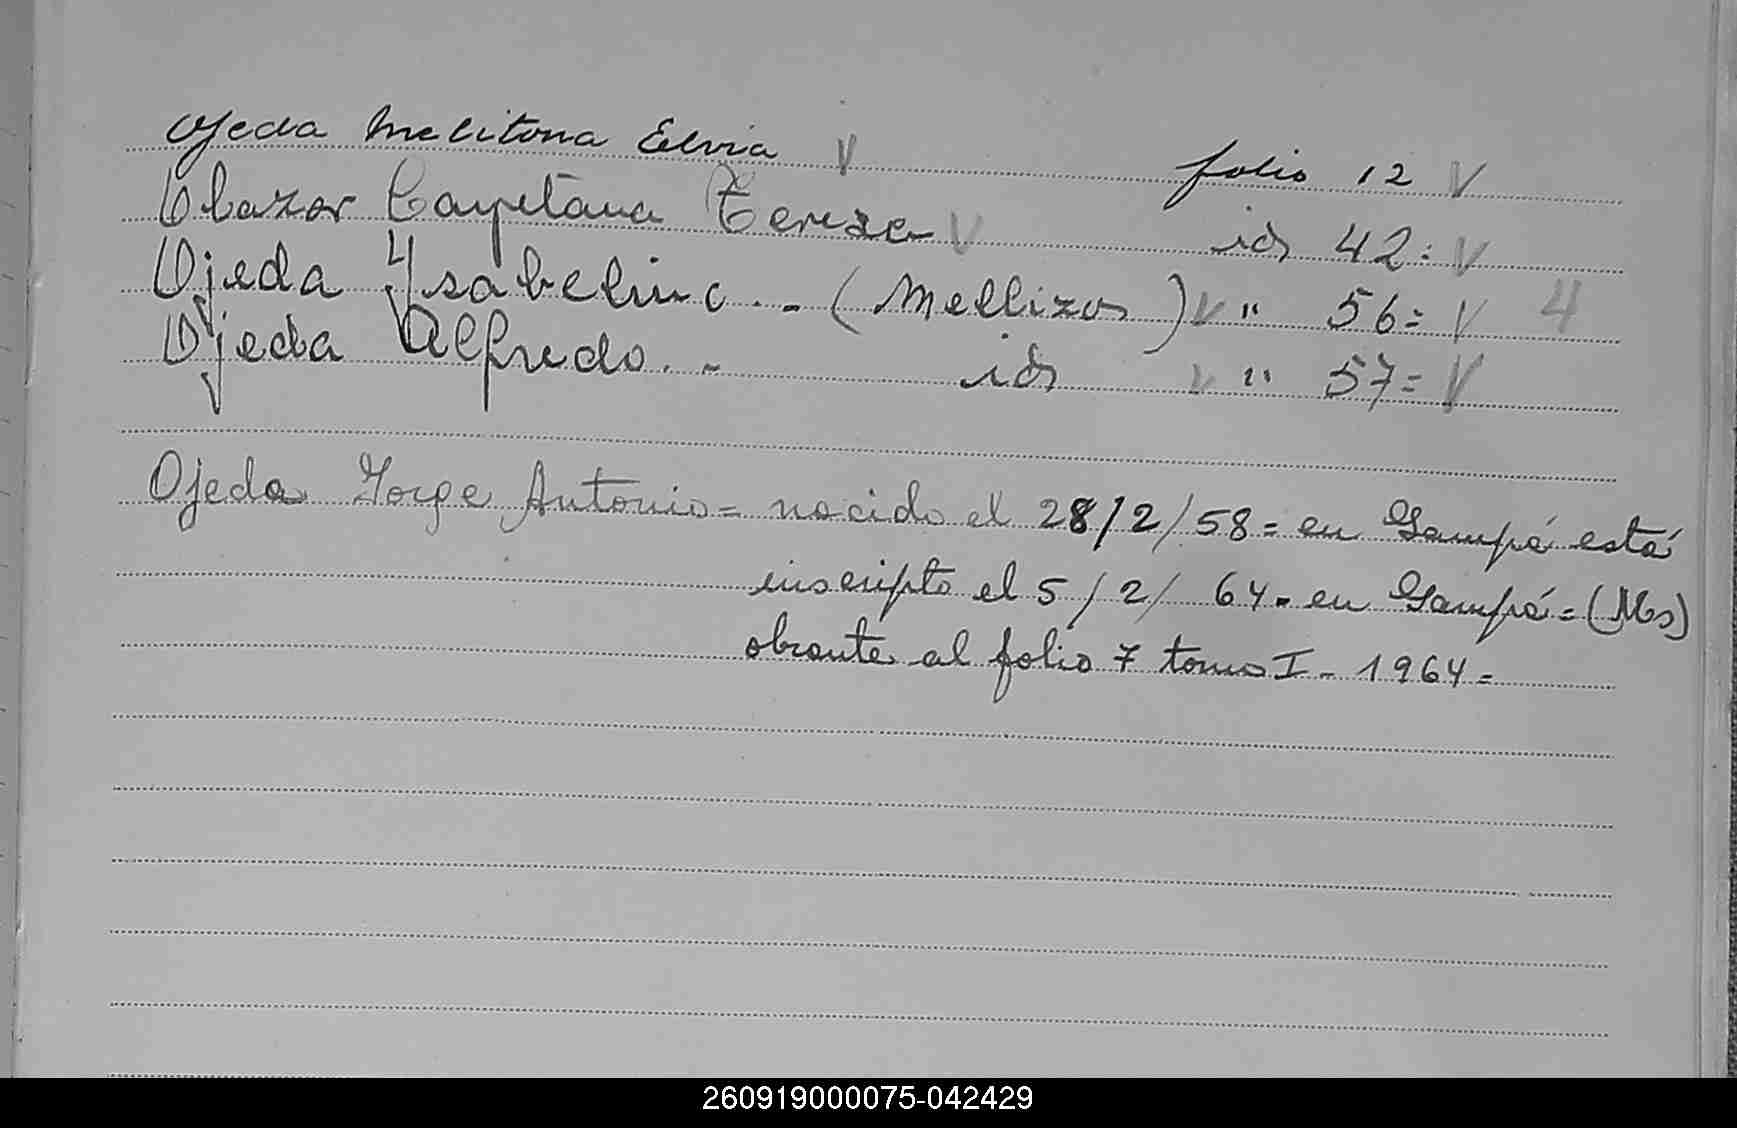 Ojeda Melitona Elvia V folio 12 V
Olazar Cayetana Teresa V id 42= V
Ojeda Ysabelino.- (Mellizos) V " 56= V 4
Ojeda Alfredo.- id V " 57= V
Ojeda Jorge Antonio= nacido el 28/2/58= en Gampá está
inscripto el 5/2/64- en Gampá= (Mes)
obrante al folio 7 tomo I- 1964=
260919000075-042429